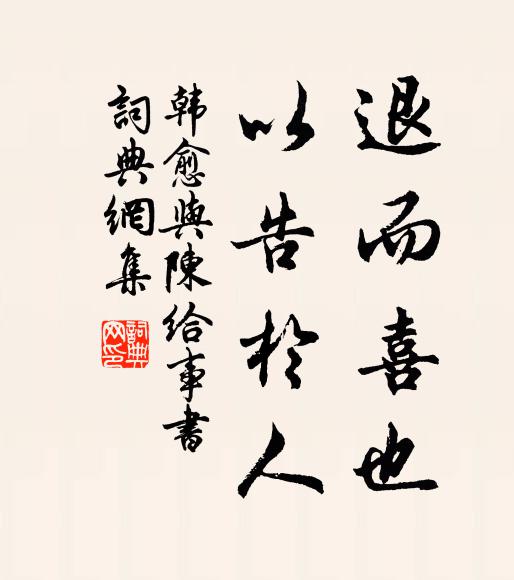 退而喜也
以告於人
韓愈與陳給事書
詞典網集
詞典
网印